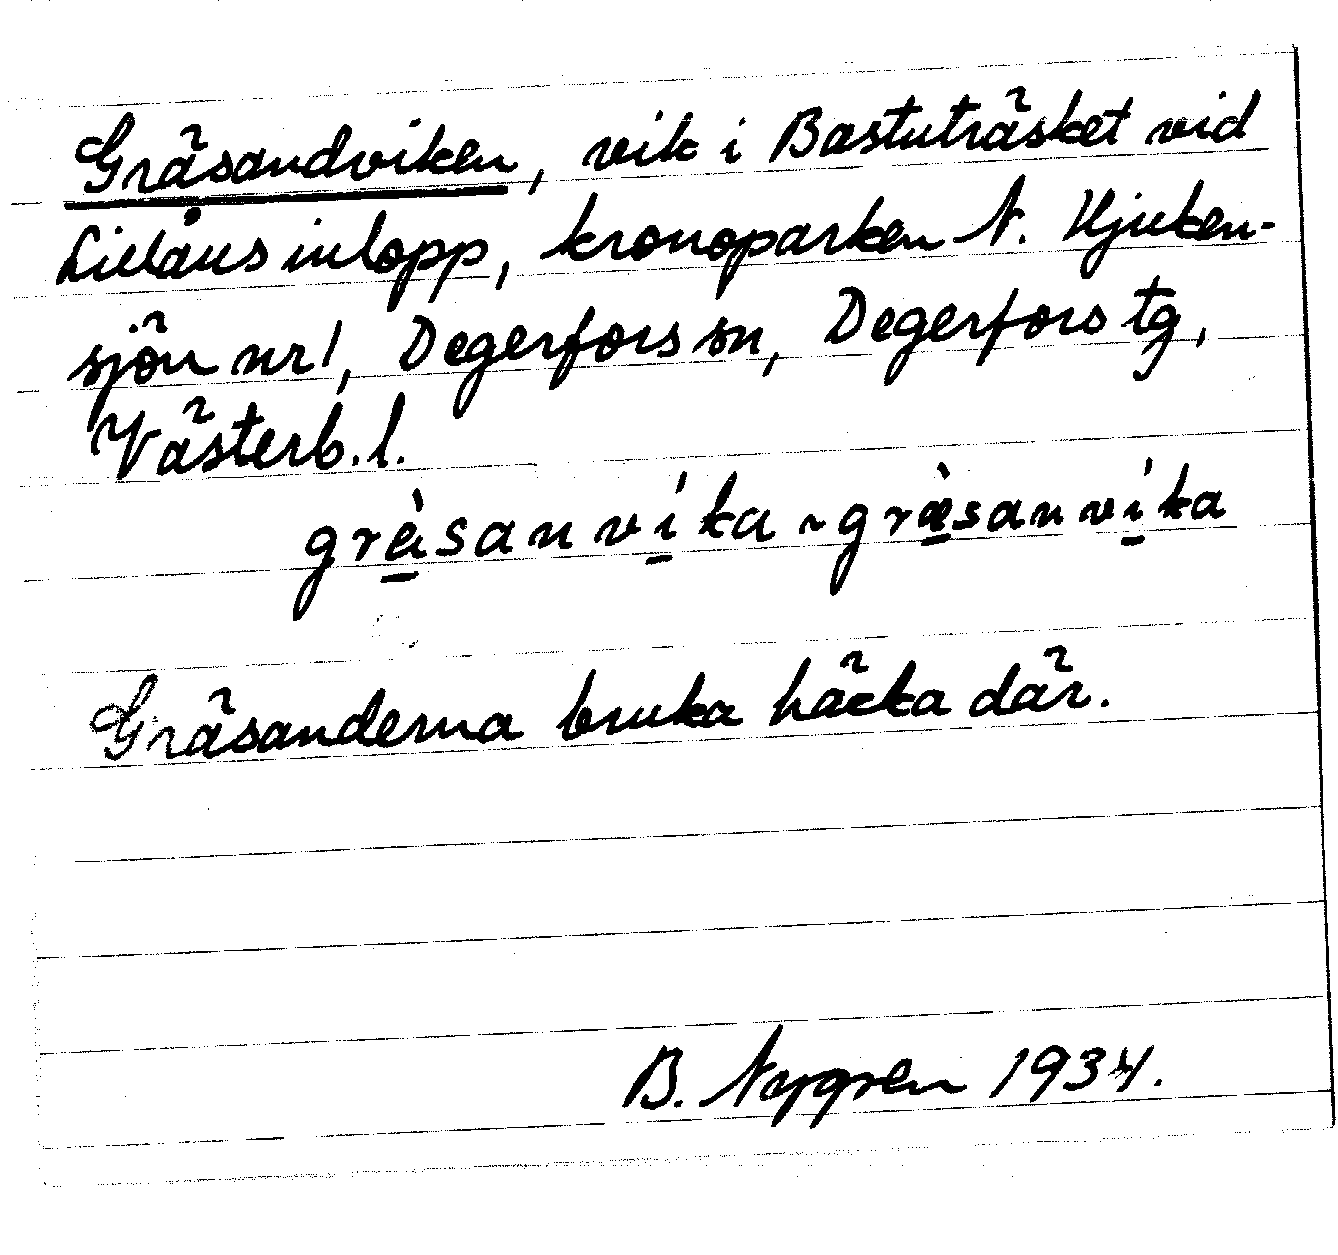 Gräsandviken, vik i Bastuträsket vid
Lillåns inlopp, kronoparken N. Hjuken-
sjön nr 1, Degerfors sn, Degerfors tg,
Västerb. l.
gràsanvíka ~ græ̀sanvíka
Gräsanderna bruka häcka där.
B. Nygren 1934.